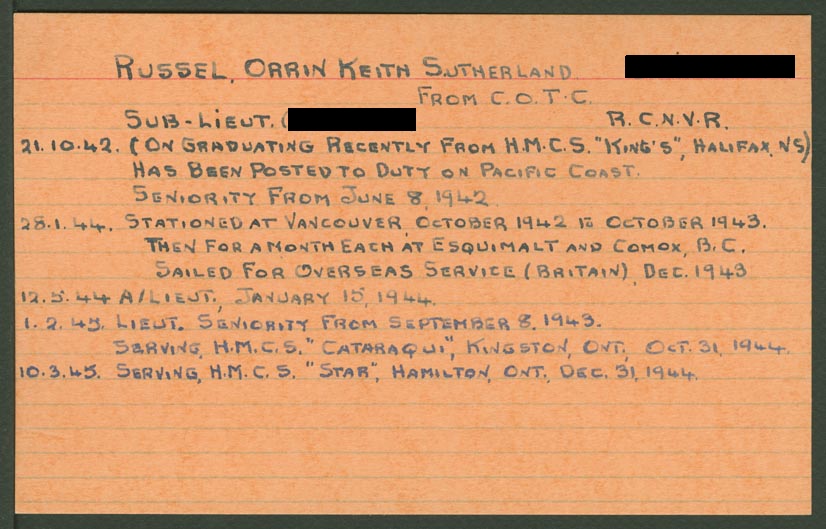 RUSSEL, ORRIN KEITH SUTHERLAND.
FROM C.O.T.C.
SUB-LIEUT. ( R.C.N.V.R.
21.10.42. (ON GRADUATING RECENTLY FROM H.M.C.S. "KING'S", HALIFAX, NS)
HAS BEEN POSTED TO DUTY ON PACIFIC COAST.
SENIORITY FROM JUNE 8, 1942.
28.1.44. STATIONED AT VANCOUVER, OCTOBER 1942 TO OCTOBER 1943.
THEN FOR A MONTH EACH AT ESQUIMALT AND COMOX, B.C.
SAILED FOR OVERSEAS SERVICE (BRITAIN), DEC. 1943
12.5.44 A/LIEUT., JANUARY 15, 1944.
1.2.45. LIEUT. SENIORITY FROM SEPTEMBER 8, 1943.
SERVING, H.M.C.S. "CATARAQUI", KINGSTON, ONT., OCT. 31, 1944.
10.3.45. SERVING, H.M.C.S. "STAR", HAMILTON, ONT., DEC. 31, 1944.